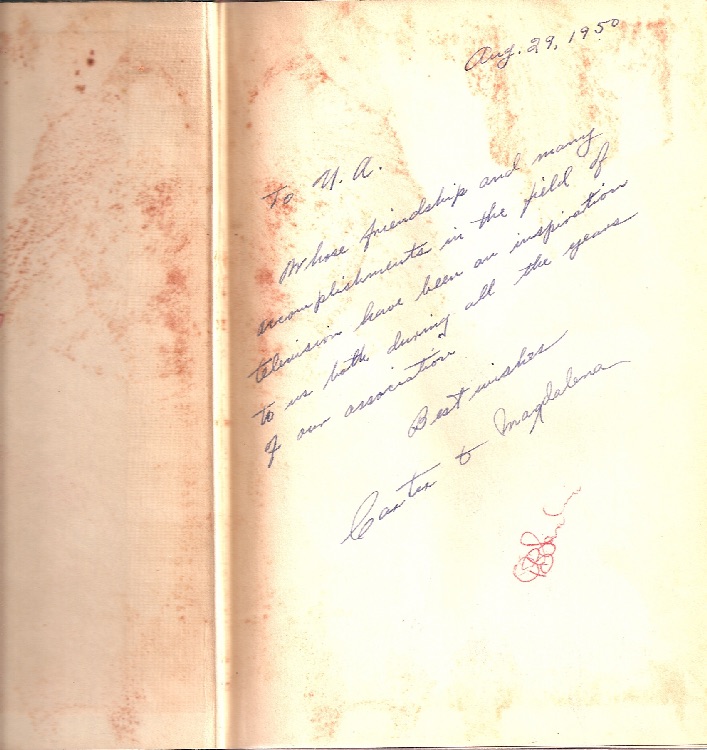 Aug. 29, 1950
To U. A.
Whose friendship and many
accomplishments in the field of
television have been an inspiration
to us both during all the years
of our association
Best wishes
Carter & Magdalena